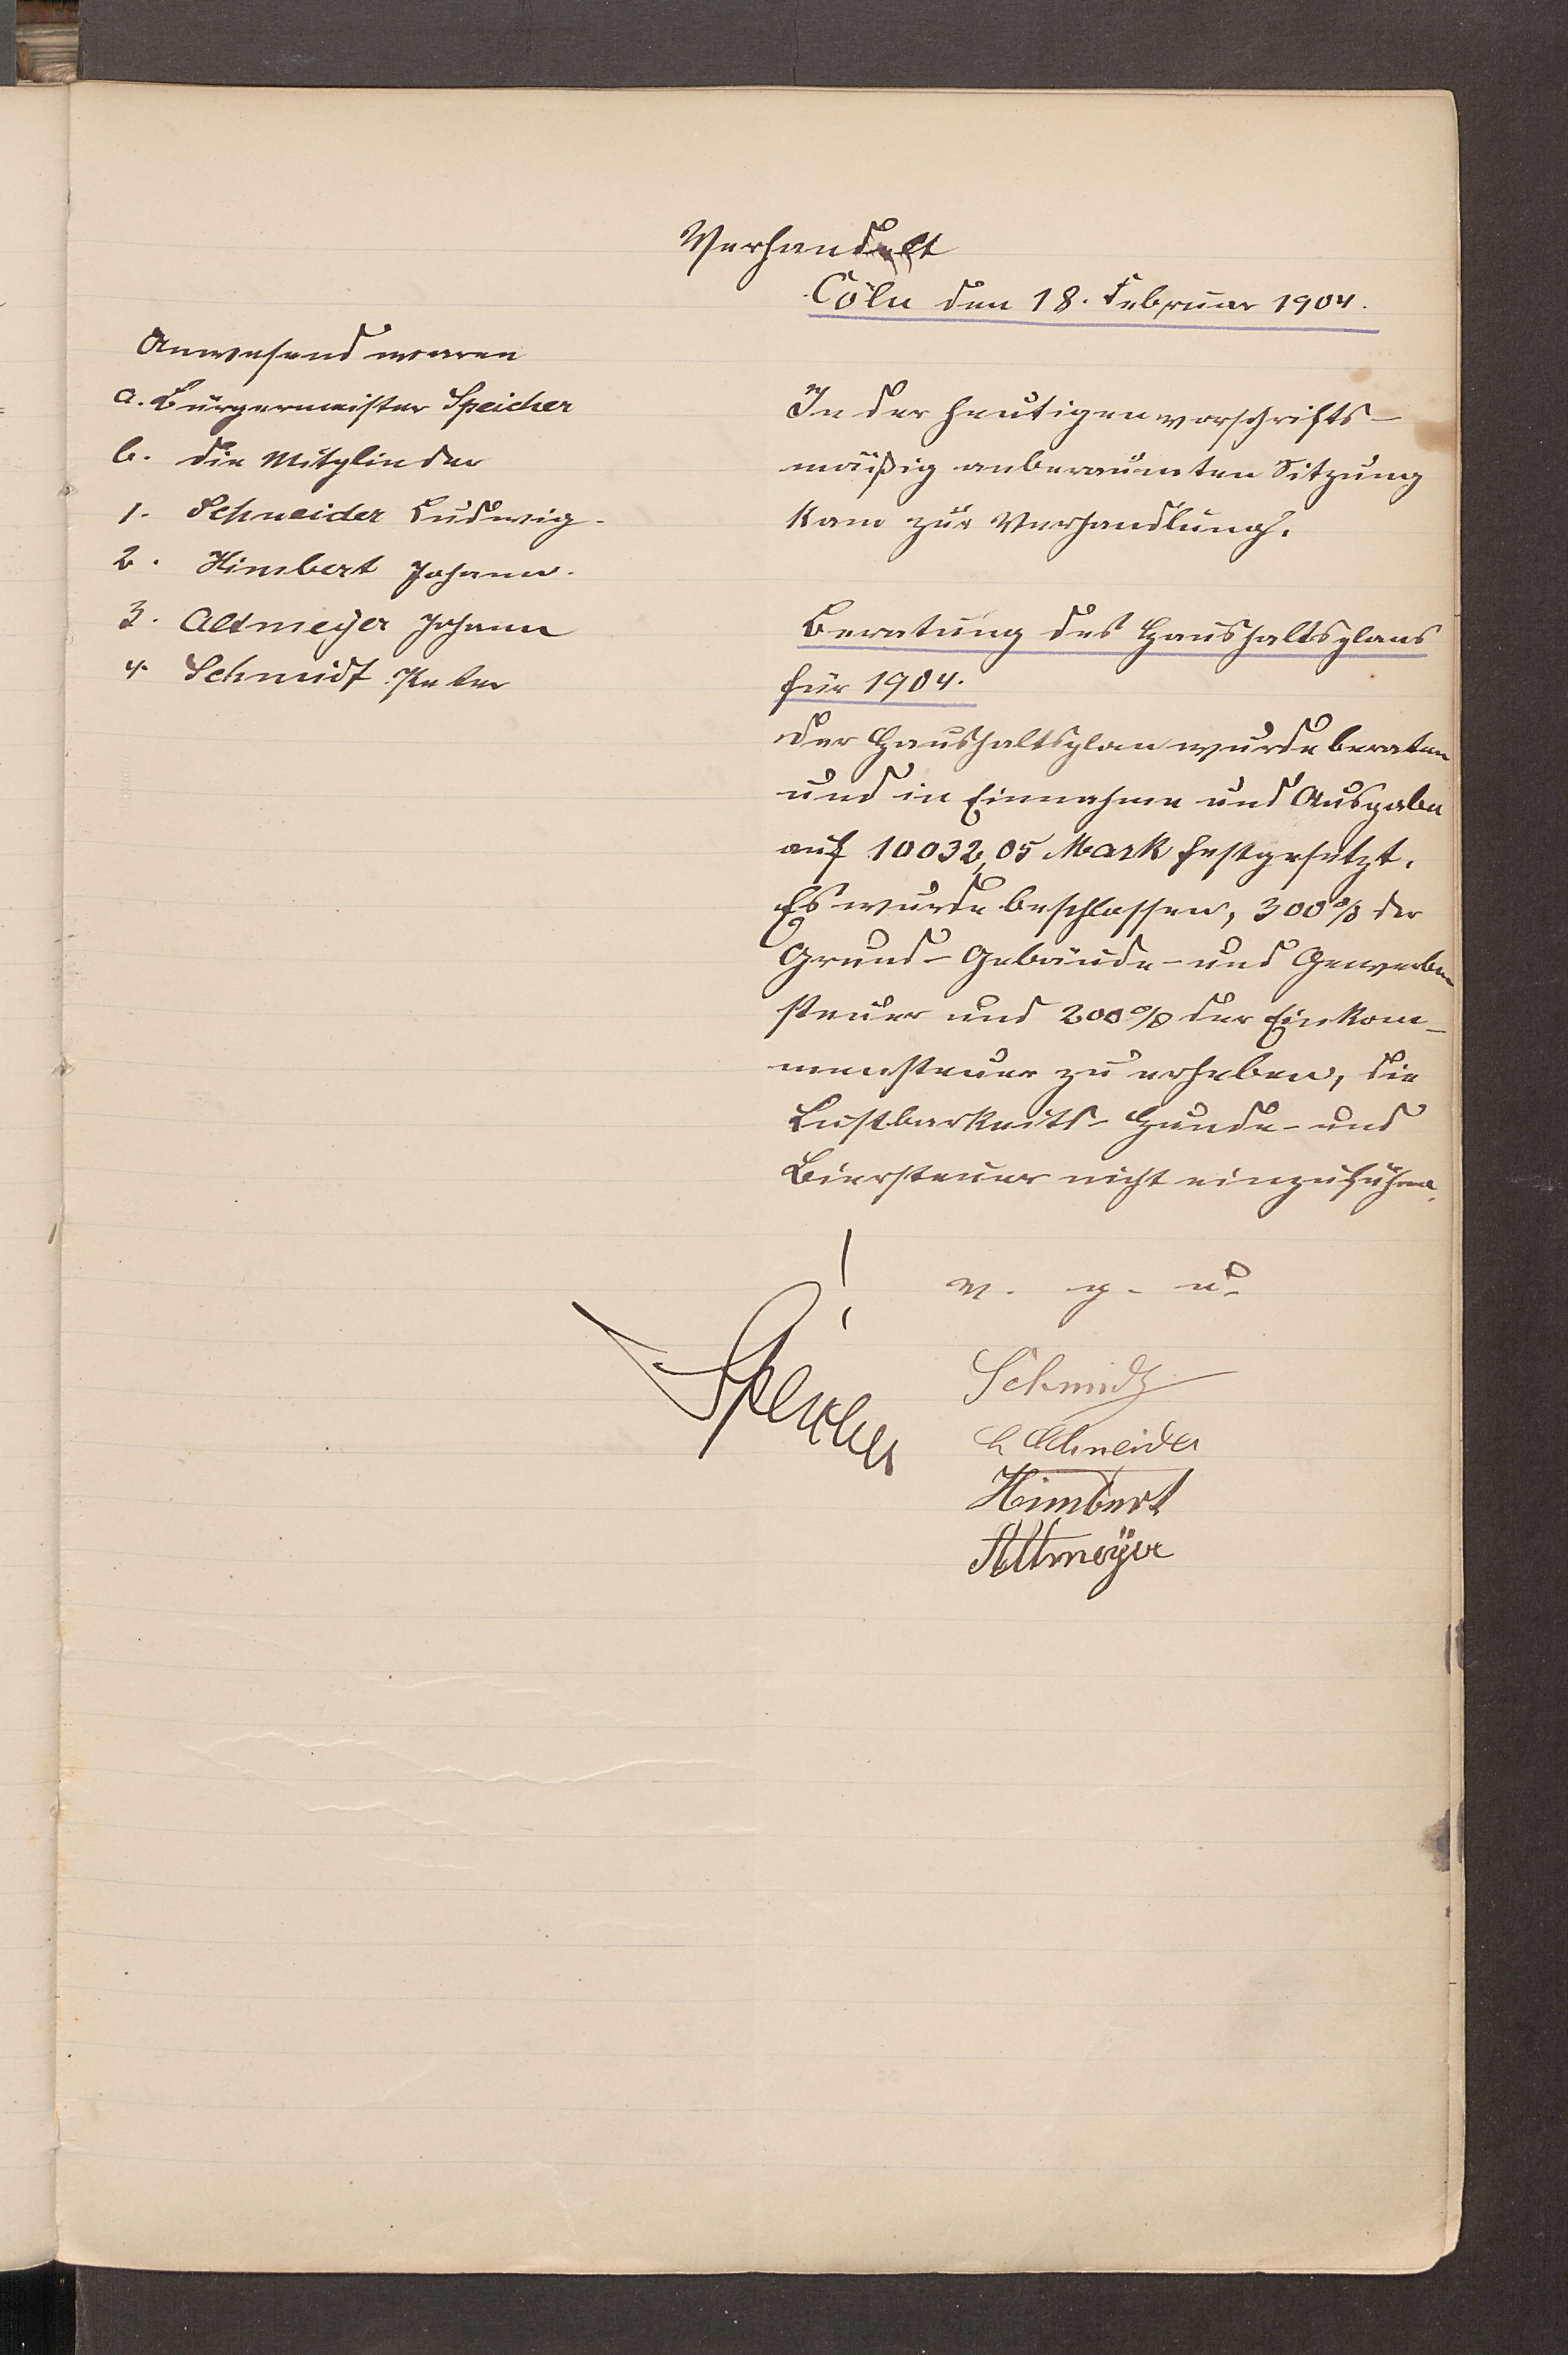 Verhandelt
Cöln den 18. Februar 1904.
Anwesend waren
a. Bürgermeister Speicher
b. die Mitglieder
1. Schneider Ludwig.
2. Himbert Johann.
3. Altmeyer Johann
4. Schmidt Peter
In der heutigen vorschrifts-
mäßig anberaumten Sitzung
kam zur Verhandlung.
Beratung des Haushaltsplans
für 1904.
Der Haushaltsplan wurde beraten
und in Einnahme und Ausgabe
auf 10032,05 Mark festgesetzt.
Es wurde beschlossen, 300% der
Grund- Gebäude- und Gewerbe
steuer und 200% der Einkom-
mensteuer zu erheben, die
Lustbarkeits- Hunde- und
Biersteuer nicht einzuführen.
v. g. u.
Speicher
Schmidt
L Schneider
Himbert
Altmeÿer